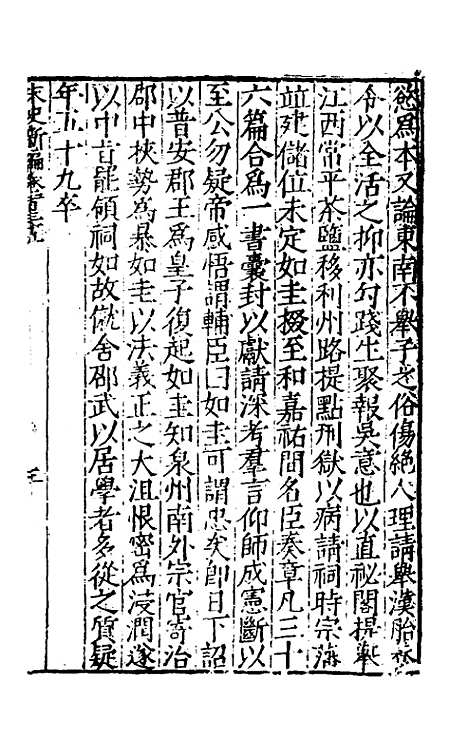 慾爲本又論東南不舉子之俗傷絶人理請舉漢胎養
令以全活之抑亦勾踐生聚報吳意也以直祕閣提舉
江西常平茶鹽移利州路提點刑獄以病請祠時宗藩
竝建儲位未定如圭掇至和嘉祐間名臣奏章凡三十
六篇合爲一書囊封以獻請深考羣言仰師成憲斷以
至公勿疑帝感悟謂輔臣曰如圭可謂忠矣卽日下詔
以普安郡王爲皇子復起如圭知泉州南外宗官寄治
郡中挾勢爲暴如圭以法義正之大沮恨密爲浸潤遂
以中旨罷領祠如故僦舍邵武以居學者多從之質疑
年五十九卒
宋史新編卷